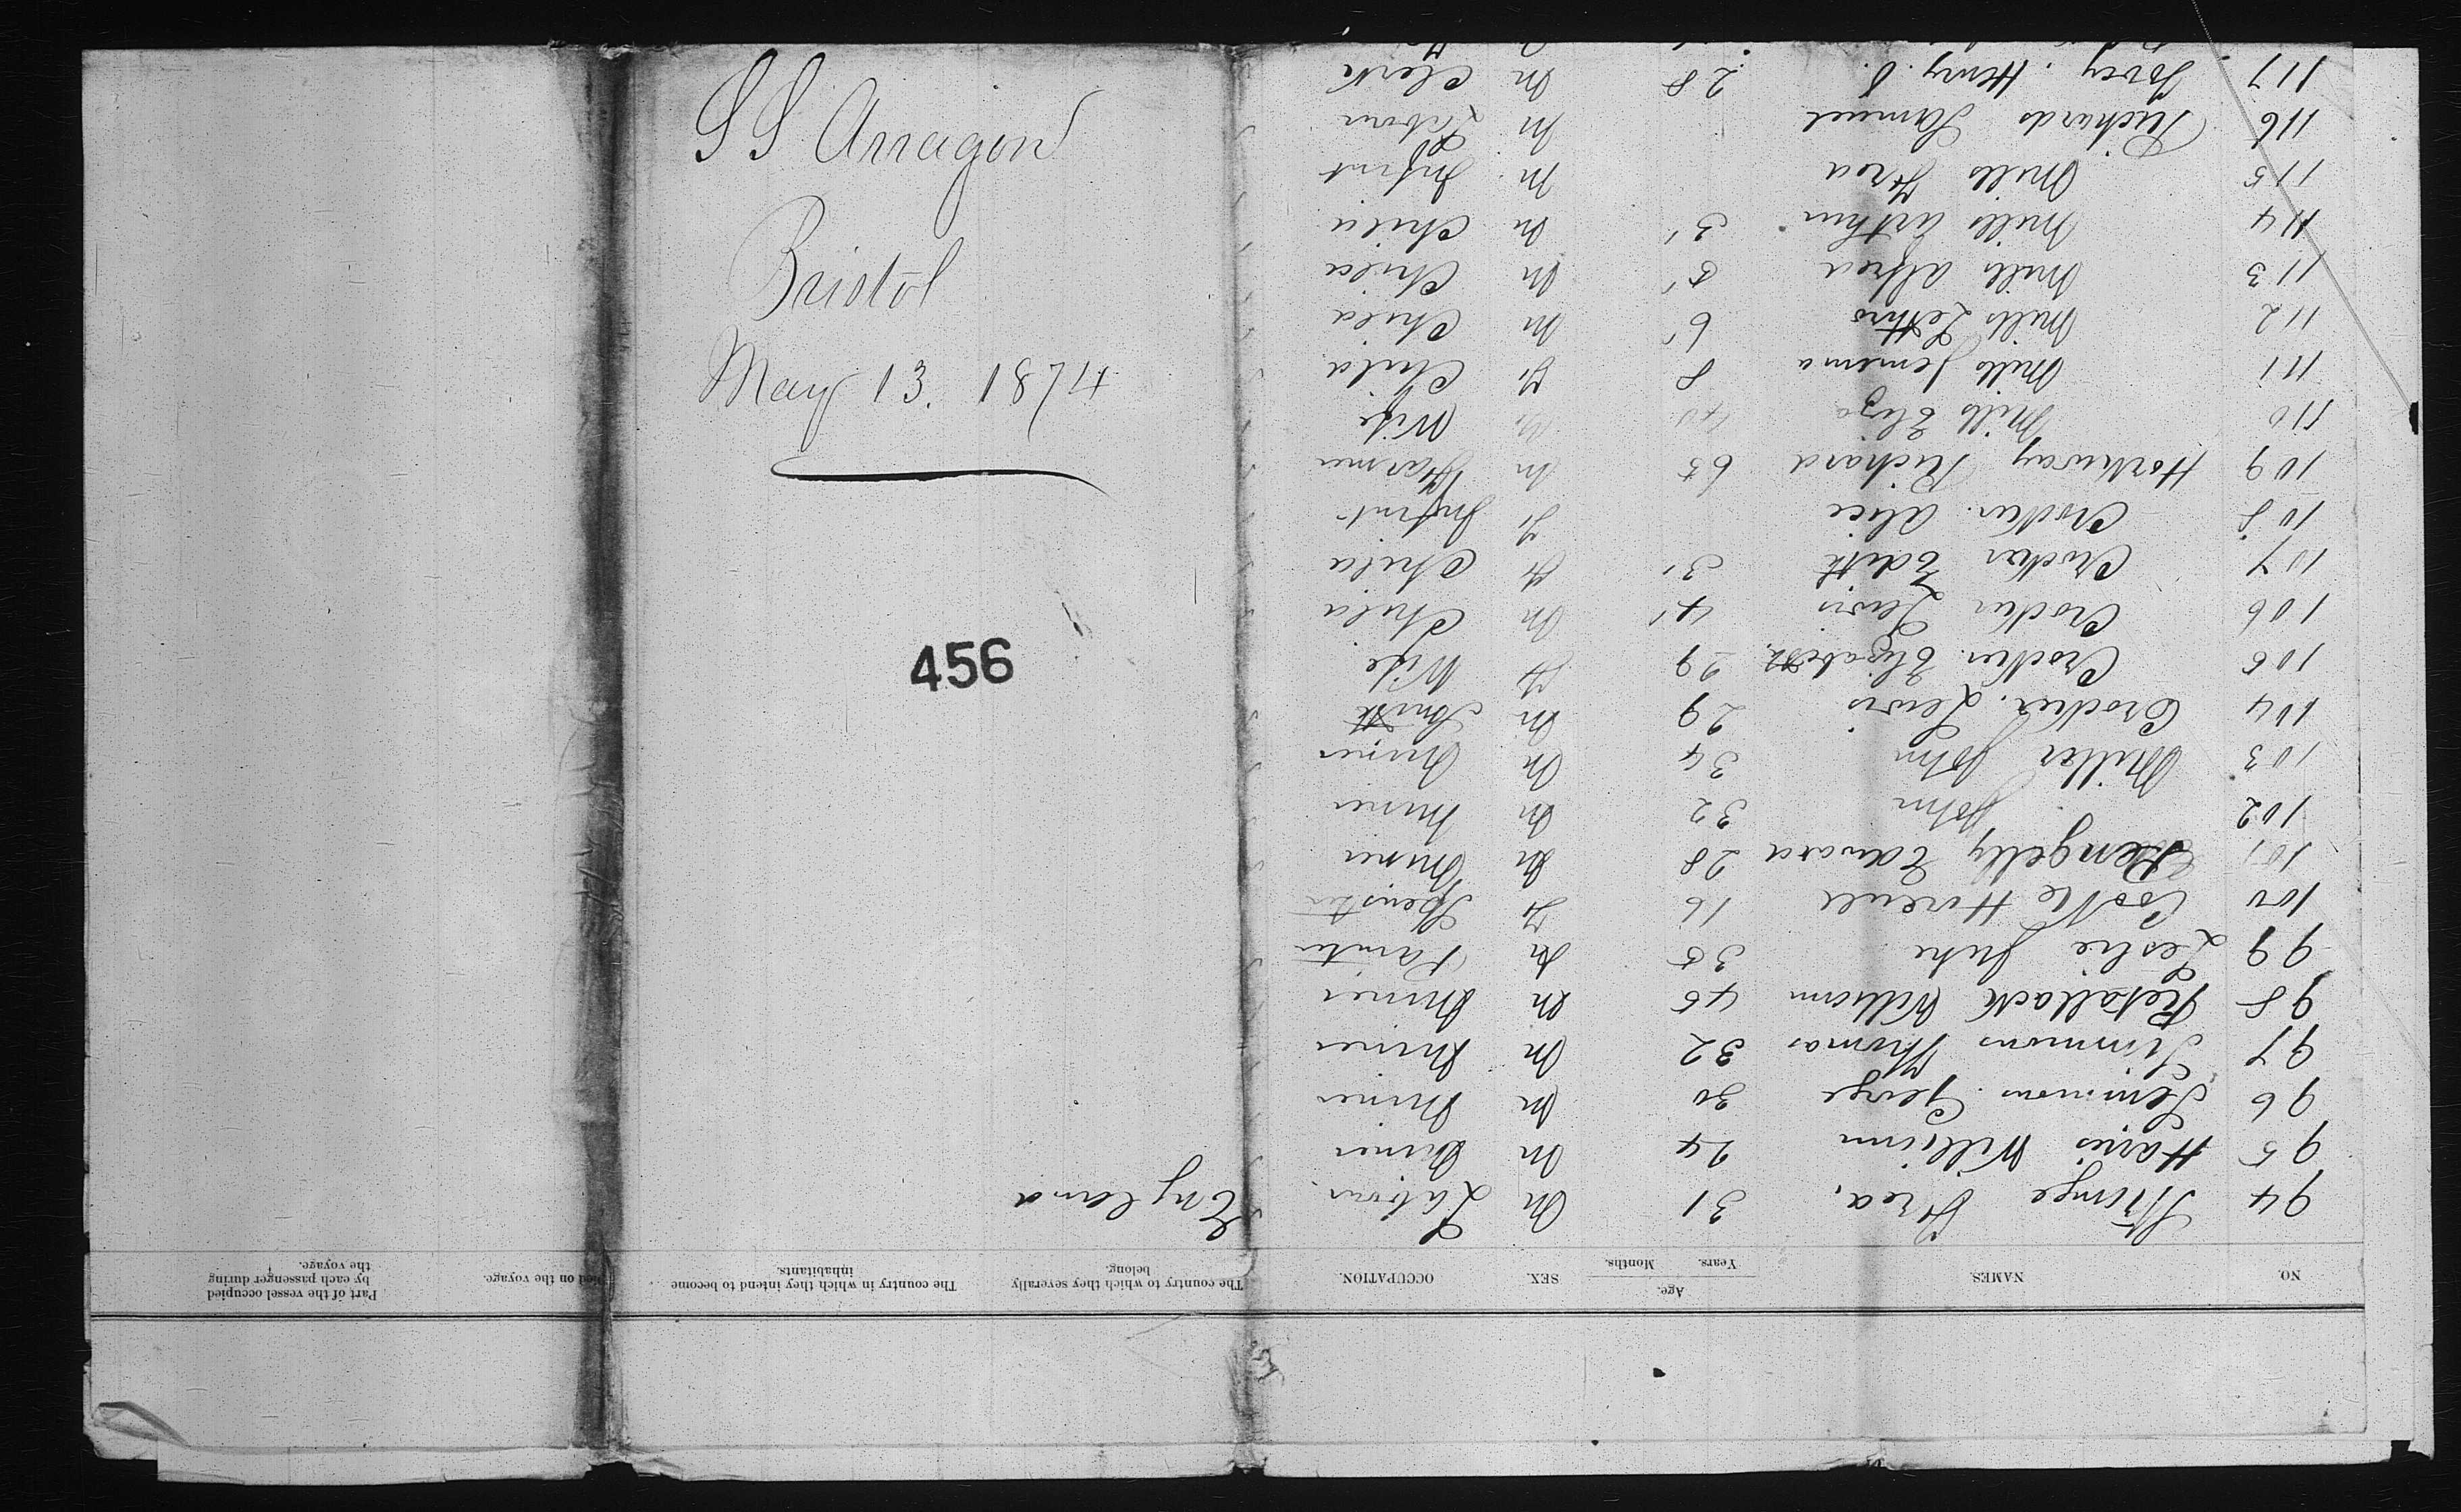 SS Arragon
Bristol
May 13. 1874
456
NO. NAMES. Age. Years. Months. SEX. OCCUPATION. The country to which they severally belong. The country in which they intend to become inhabitants. Died on the voyage. Part of the vessel occupied by each passenger during the voyage.
94 Fred. 31 M Labour. England
95 Harris William 24 M Miner
96 Simmons George 30 M Miner
97 Simmons Thomas 32 M Miner
98 Retallack William 45 M Miner
99 Leslie 35 M Painter
100 16 F Spinster
101 Pengelly Edward 28 M Miner
102 " John 32 M Miner
103 Miller John 34 M Miner
104 Crocker. Lewis 29 M Smith
105 Crocker Elizabeth 29 F Wife
106 Crocker Lewis 4 M Child
107 Crocker Edith 3 F Child
108 Crocker. Alice F Infant
109 Richard 65 M Farmer
110 Mills Eliza 40 Wife
111 Mills Jemima 8 F Child
112 Mills 6 M Child
113 Mills Alfred 5 M Child
114 Mills Arthur 3 M Child
115 Mills Fred M Infant
116 Richards Samuel M Labour
117 Henry. 28 M Clerk